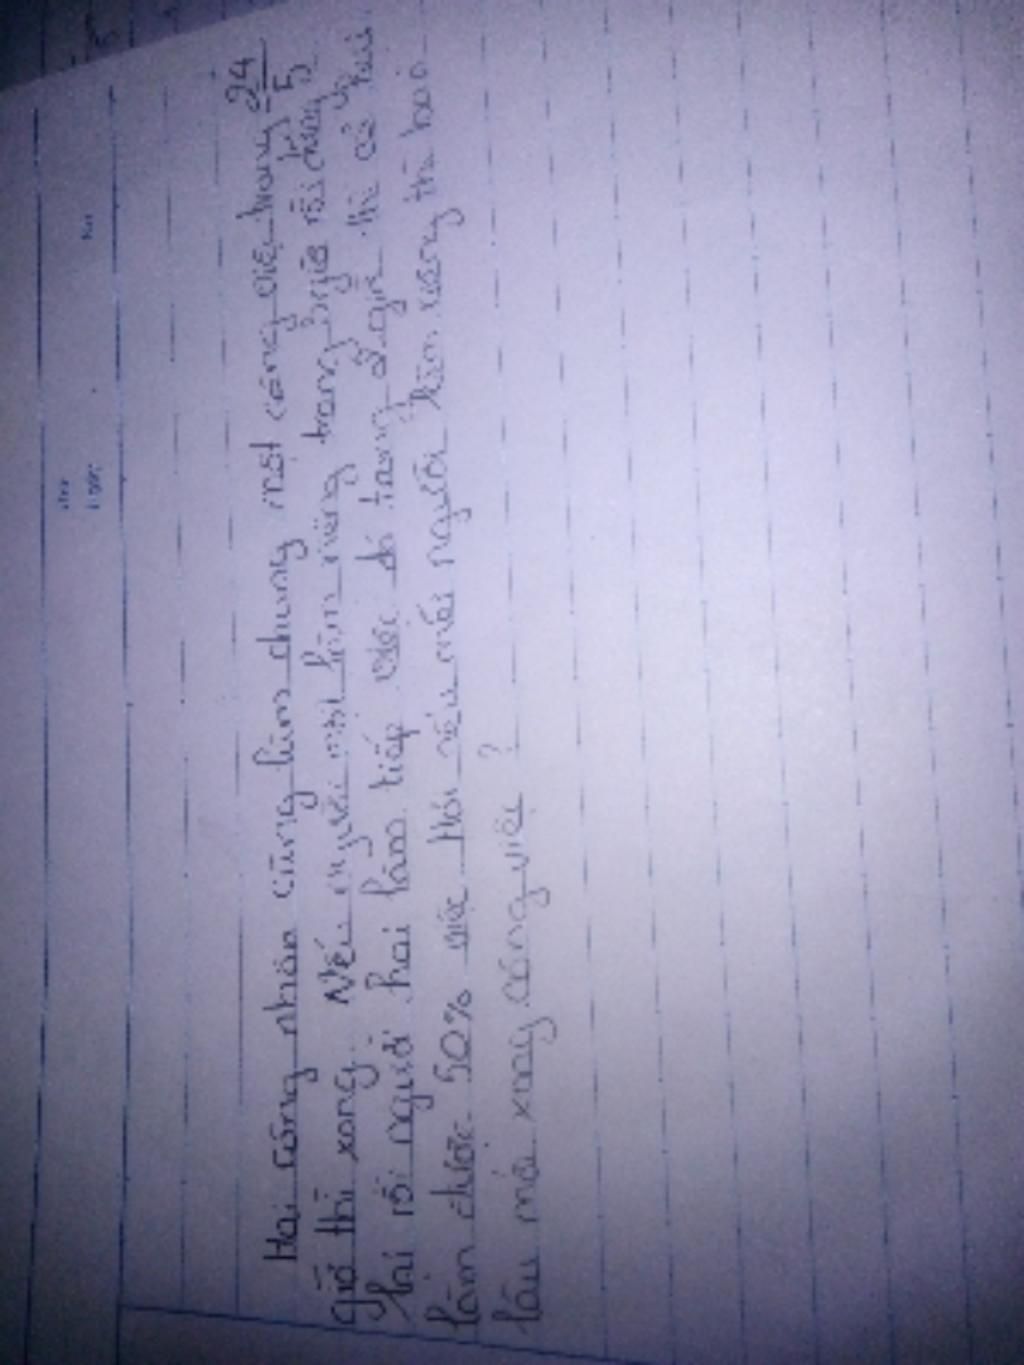 Hai công nhân cùng làm chung một công việc trong 24/5
giờ thì xong. Nếu người một làm riêng trong giờ rồi dừng
lại rồi người hai làm tiếp việc đó trong giờ thì cả hai
làm được 50% việc. Hỏi nếu mỗi người làm riêng thì bao
lâu mới xong công việc?